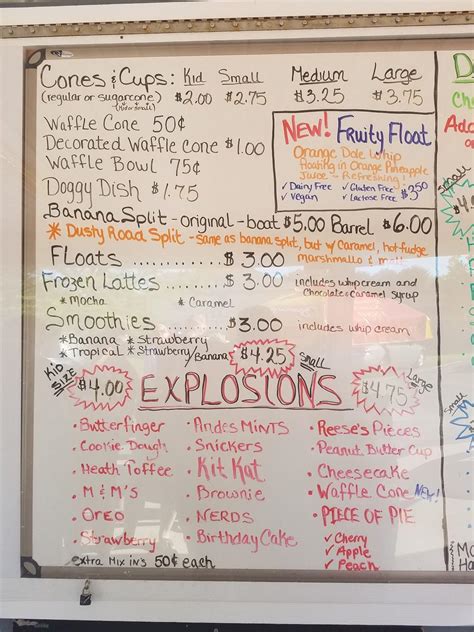 Cones & Cups: Kid Small Medium Large
(regular or sugarcone) $2.00 $2.75 $3.25 $3.75
Waffle Cone 50¢
Decorated Waffle cone $1.00
Waffle Bowl 75¢
Doggy Dish $1.75
NEW! Fruity Float
Orange Dole Whip
floating in Orange Pineapple
Juice - Refreshing!
✓ Dairy Free ✓ Gluten Free $3.50
✓ Vegan ✓ Lactose Free
Banana Split - original - boat $5.00 Barrel $6.00
* Dusty Road Split - same as banana split, but w/ caramel, hot-fudge
marshmallo &
Floats ........ $3.00
Frozen Lattes ........ $3.00 includes whip cream and
Chocolate & Caramel syrup
* Mocha * Caramel
Smoothies ........ $3.00 includes whip cream
* Banana * Strawberry
* Tropical * Strawberry/Banana
KID SIZE $4.00
EXPLOSIONS
$4.25 Small
$4.75 Large
• Butterfinger
• Cookie Dough
• Heath Toffee
• M & M's
• OREO
• Strawberry
• Andes MINTS
• Snickers
• Kit Kat
• Brownie
• NERDS
• Birthday Cake
• Reese's Pieces
• Peanut Butter Cup
• Cheesecake
• Waffle Cone NEW!
• PIECE OF PIE
✓ Cherry
✓ Apple
✓ Peach
extra Mix in's 50¢ each